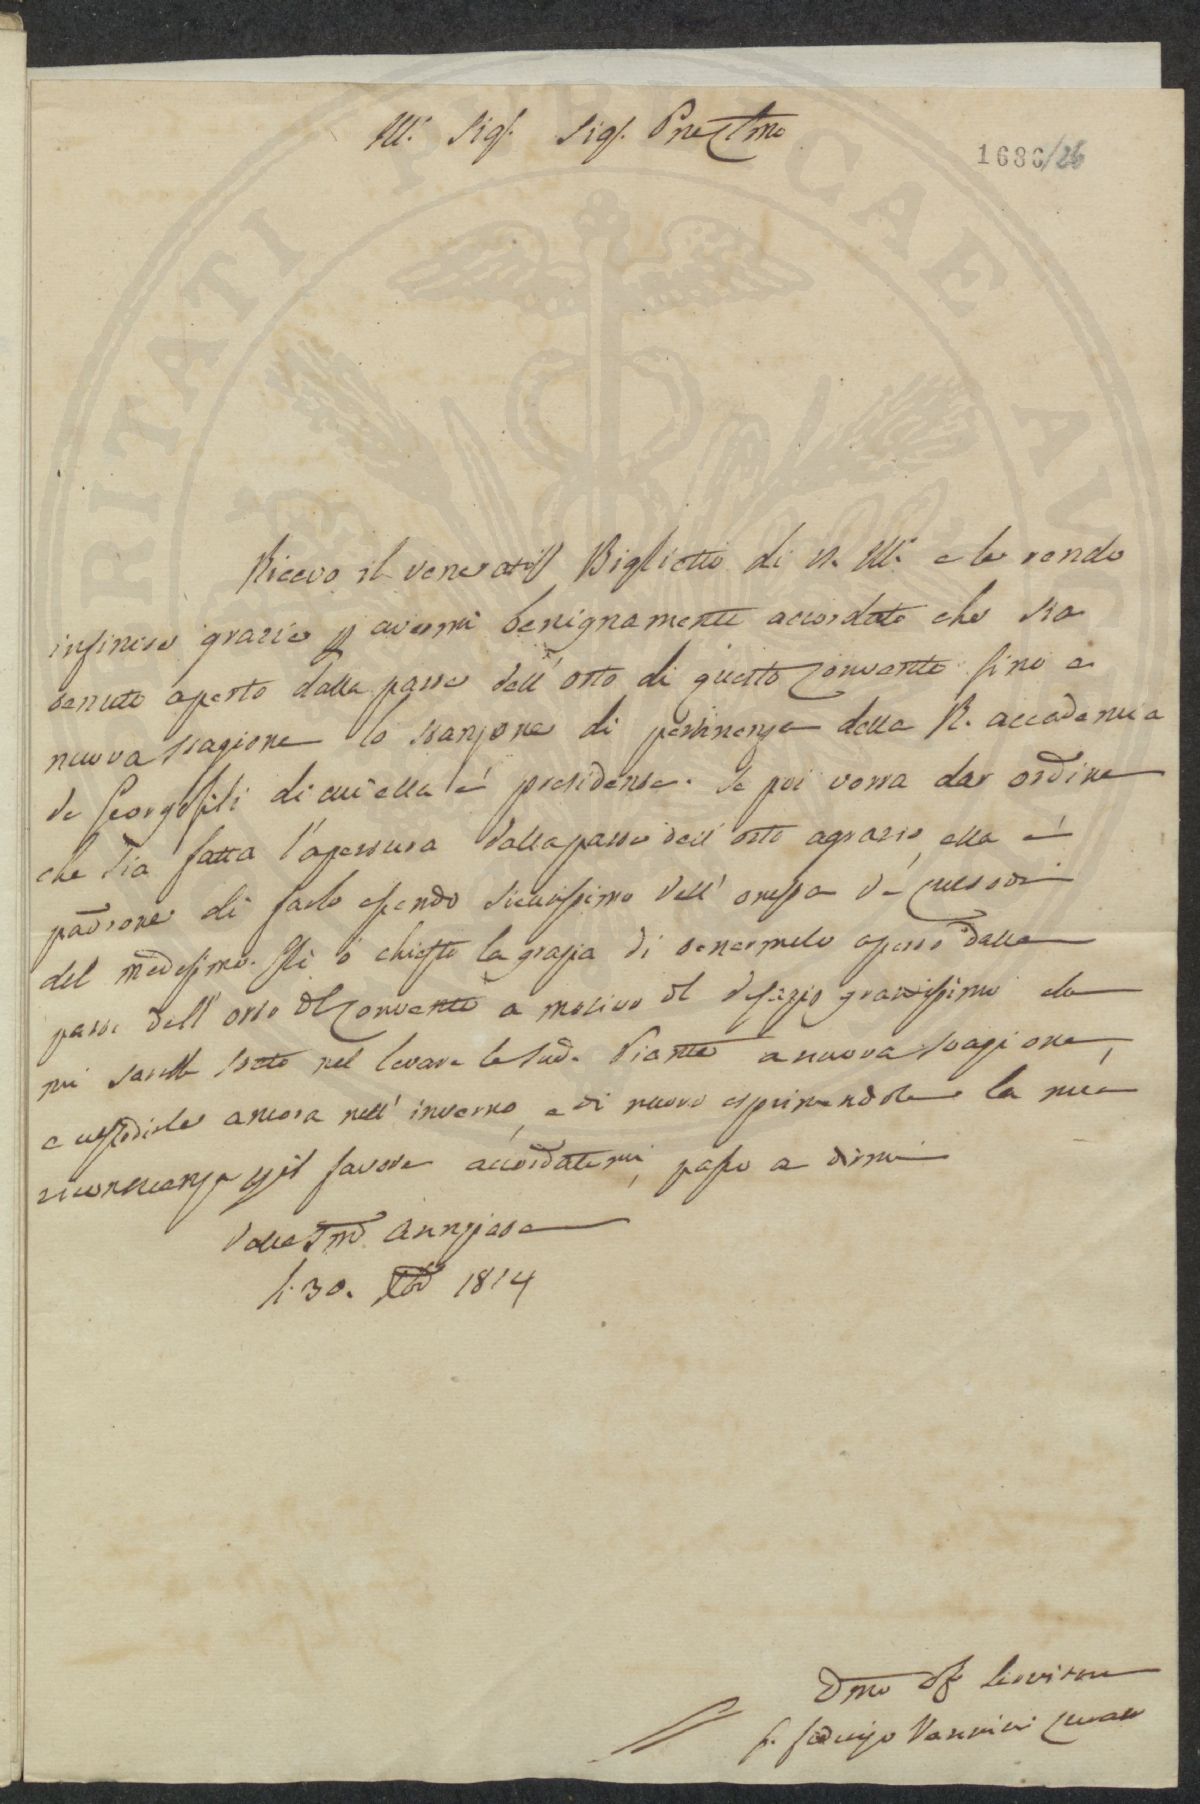 Ill. Sig. Sig. Pne Clmo
1686/26
Ricevo il veneratiss Biglietto di V. Ill. e le rendo
infinite grazie p avermi benignamente accordato che sia
tenuto aperto dalla parte dell' Orto di questo Convento fino a
nuova stagione lo stanzone di pertinenza della R. accademia
de Georgofili di cui ella é presidente. Se poi vorra dar ordine
che sia fatta l'apertura dalla parte dell' orto agrario, ella é
padrone di farlo essendo sicurissimo dell' onestà de Custodi
del medesimo. Gli ò chiesto la grazia di tenermelo aperto dalla
parte dell' orto del Convento a motivo del disagio gravissimo che
mi sarebbe stato nel levare le sudd. Piante a nuova stagione,
e custodirle ancora nell' inverno, e di nuovo esprimendole la mia
riconoscenza p il favore accordatomi, passo a dirmi
Dalla SSma Annziata
li 30. Xbre 1814
Dmo Servitore
f. Vannini Curato
RITATI PUBLICAE AU